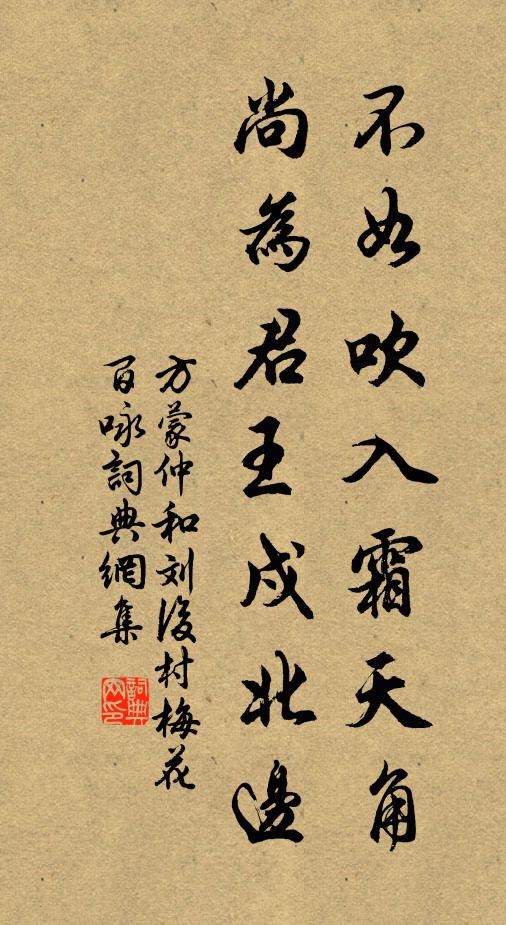 不如吹入霜天角
尚為君王戍北邊
方蒙仲和刘後村梅花
百咏詞典網集
詞典网印